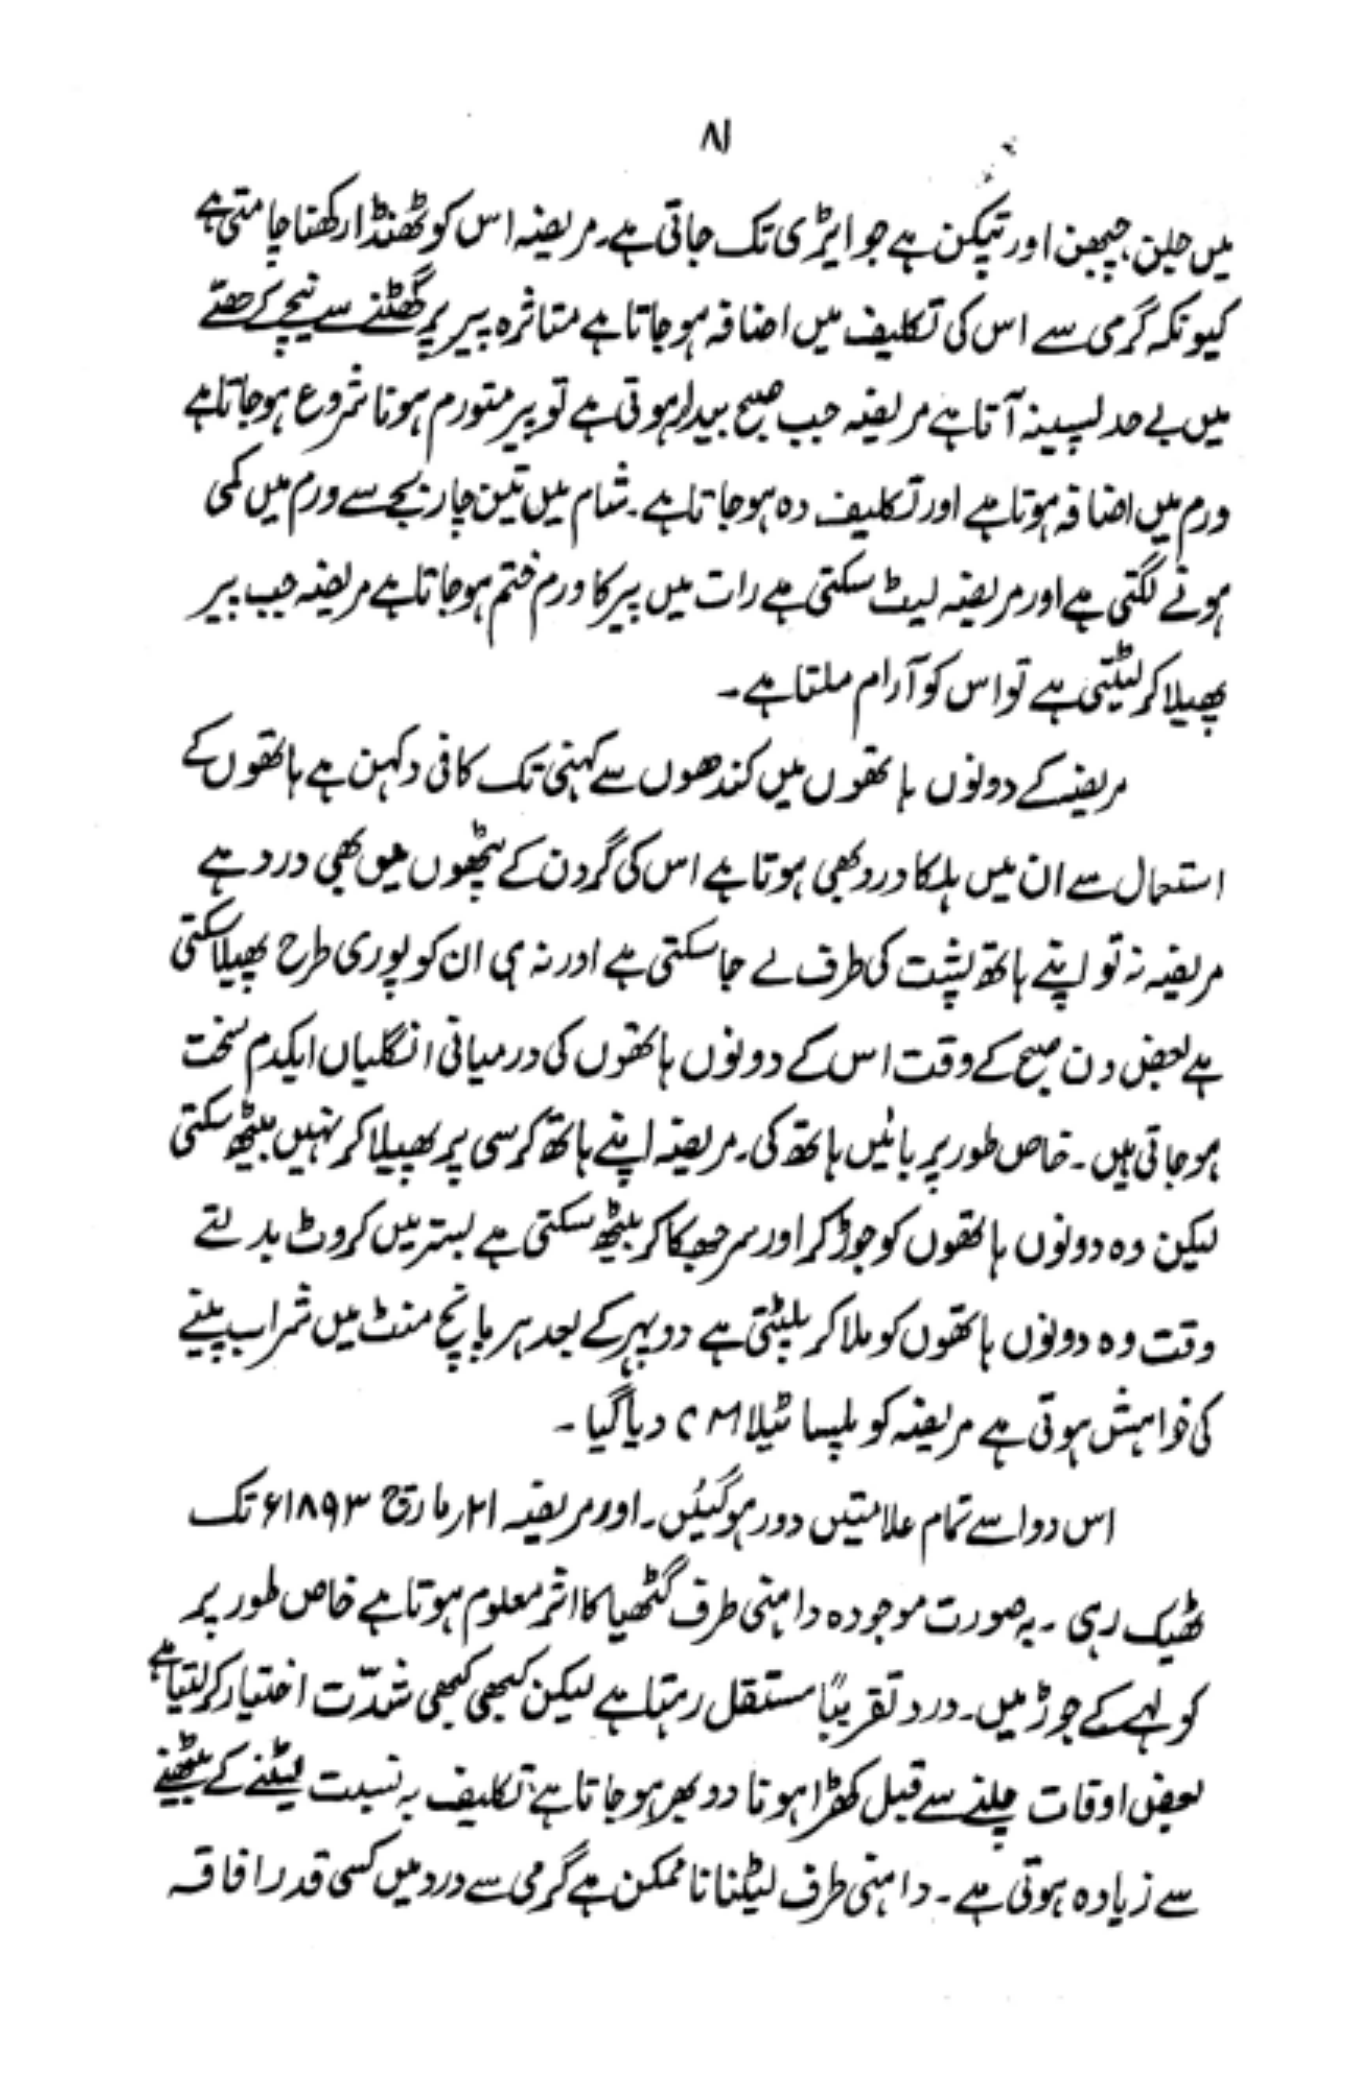 ۸۱
میں جلن، چبھن اور تپکن ہے جو ایڑی تک جاتی ہے۔ مریضہ اس کو ٹھنڈا رکھنا چاہتی ہے
کیونکہ گرمی سے اس کی تکلیف میں اضافہ ہو جاتا ہے متاثرہ پیر پر گھٹنے سے نیچے کے حصّے
میں بے حد پسینہ آتا ہے مریضہ جب صبح بیدار ہوتی ہے تو پیر متورم ہونا شروع ہو جاتا ہے
ورم میں اضافہ ہوتا ہے اور تکلیف دہ ہو جاتا ہے۔ شام میں تین چار بجے سے ورم میں کمی
ہونے لگتی ہے اور مریضہ لیٹ سکتی ہے رات میں پیر کا ورم ختم ہو جاتا ہے مریضہ جب پیر
پھیلا کر لیٹتی ہے تو اس کو آرام ملتا ہے۔
مریضہ کے دونوں ہاتھوں میں کندھوں سے کہنی تک کافی دکہن ہے ہاتھوں کے
استعمال سے ان میں ہلکا درد بھی ہوتا ہے اس کی گردن کے پٹھوں میں بھی درد ہے
مریضہ نہ تو اپنے ہاتھ پشت کی طرف لے جا سکتی ہے اور نہ ہی ان کو پوری طرح پھیلا سکتی
ہے بعض دن صبح کے وقت اس کے دونوں ہاتھوں کی درمیانی انگلیاں ایکدم سخت
ہو جاتی ہیں۔ خاص طور پر بائیں ہاتھ کی۔ مریضہ اپنے ہاتھ کرسی پر پھیلا کر نہیں بیٹھ سکتی
لیکن وہ دونوں ہاتھوں کو جوڑ کر اور سر جھکا کر بیٹھ سکتی ہے بستر میں کروٹ بدلتے
وقت وہ دونوں ہاتھوں کو ملا کر پلٹتی ہے دوپہر کے بعد ہر پانچ منٹ میں شراب پینے
کی خواہش ہوتی ہے مریضہ کو پلسا ٹیلا CM دیا گیا۔
اس دوا سے تمام علامتیں دور ہو گئیں۔ اور مریضہ ۲۱؍ مارچ ۱۸۹۳ء تک
ٹھیک رہی۔ بہ صورت موجودہ داہنی طرف گٹھیا کا اثر معلوم ہوتا ہے خاص طور پر
کولہے کے جوڑ میں۔ درد تقریباً مستقل رہتا ہے لیکن کبھی کبھی شدّت اختیار کر لیتا ہے
بعض اوقات چلنے سے قبل کھڑا ہونا دوبھر ہو جاتا ہے، تکلیف بہ نسبت لیٹنے کے بیٹھنے
سے زیادہ ہوتی ہے۔ داہنی طرف لیٹنا ناممکن ہے گرمی سے درد میں کسی قدر افاقہ